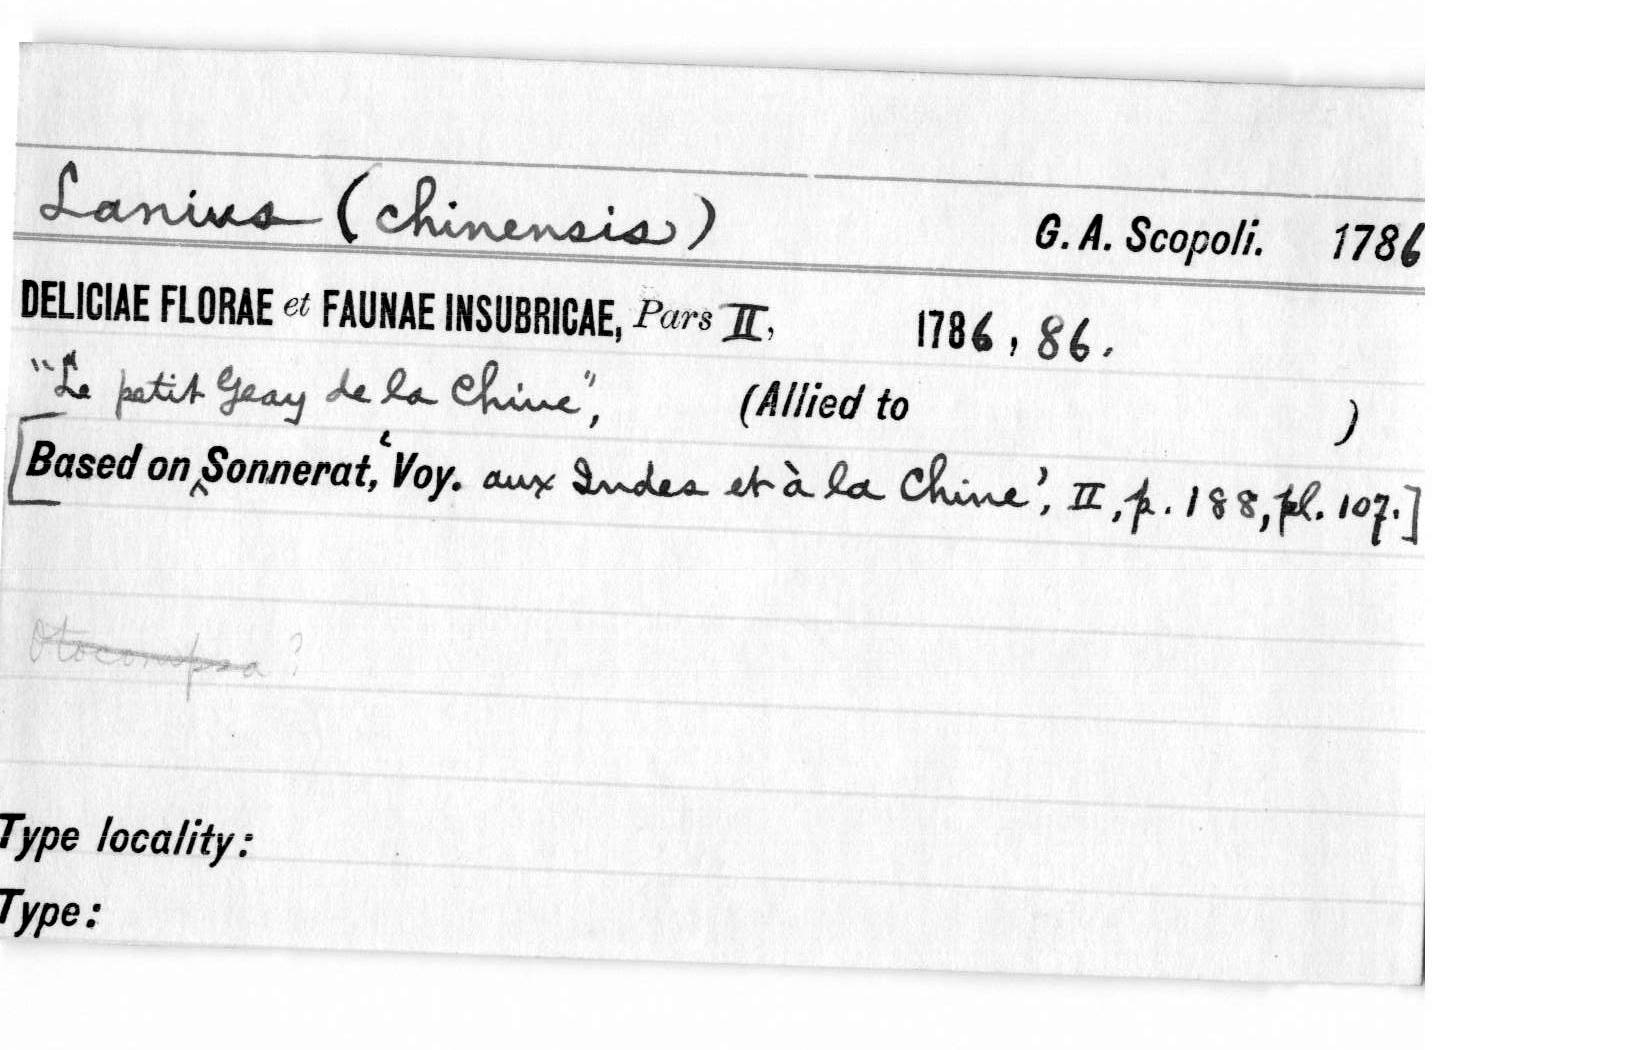 Lanius (chinensis) G. A. Scopoli. 1786
DELICIAE FLORAE et FAUNAE INSUBRICAE, Pars II, 1786, 86.
"Le petit Geay de la Chine", (Allied to )
[Based on ‸ Sonnerat, 'Voy. aux Indes et à la Chine', II, p. 188, pl. 107.]
Otocompsa ?
Type locality:
Type: